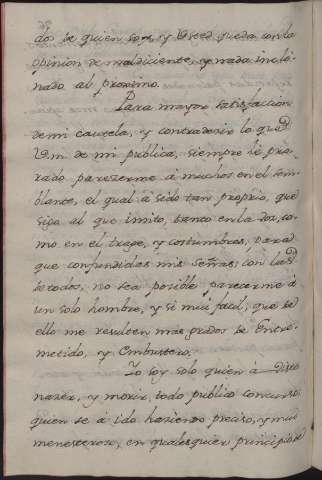 dos de quien soy, y Vsted queda con la
opinion de maldiciente, y nada incli-
nado al proximo.
Para mayor satisfaccion
de mi cautela, y contradecir lo que
Vm. de mi publica, siempre hé pro-
curado parezerme á muchos en el sem-
blante, el qual á sido tan proprio, que
sigo al que imito, tanto en la voz, co-
mo en el trage, y costumbres, para
que confundidas mis señas, con las
de todos, no sea posible parecerme á
un solo hombre, y si mui facil, que de
ello me resulten mas grados de Entre-
metido, y Embustero.
Yo soy solo quien á visto
nazer, y morir, todo publico concurso,
quien se á ido haziendo preciso, y mui
menesteroso, en qualesquier principio de